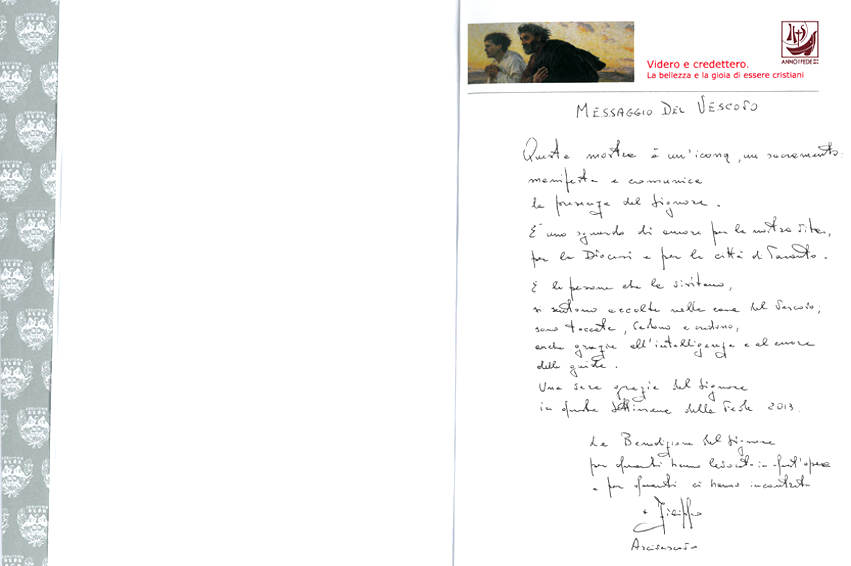 Videro e credettero.
La bellezza e la gioia di essere cristiani
ANNO FEDE
MESSAGGIO DEL VESCOVO
Questa mostra è un'icona, un sacramento:
manifesta e comunica
la presenza del Signore.
È uno sguardo di amore per la nostra vita,
per la Diocesi e per la città di Taranto.
E le persone che la visitano,
si sentono accolte nella casa del Vescovo;
sono toccate, vedono e credono,
anche grazie all'intelligenza e al cuore
delle guide.
Una vera grazia del Signore
in queste settimane della Fede 2013.
La Benedizione del Signore
per quanti hanno lavorato in quest'opera
e per quanti ci hanno incontrato
+ Filippo
Arcivescovo